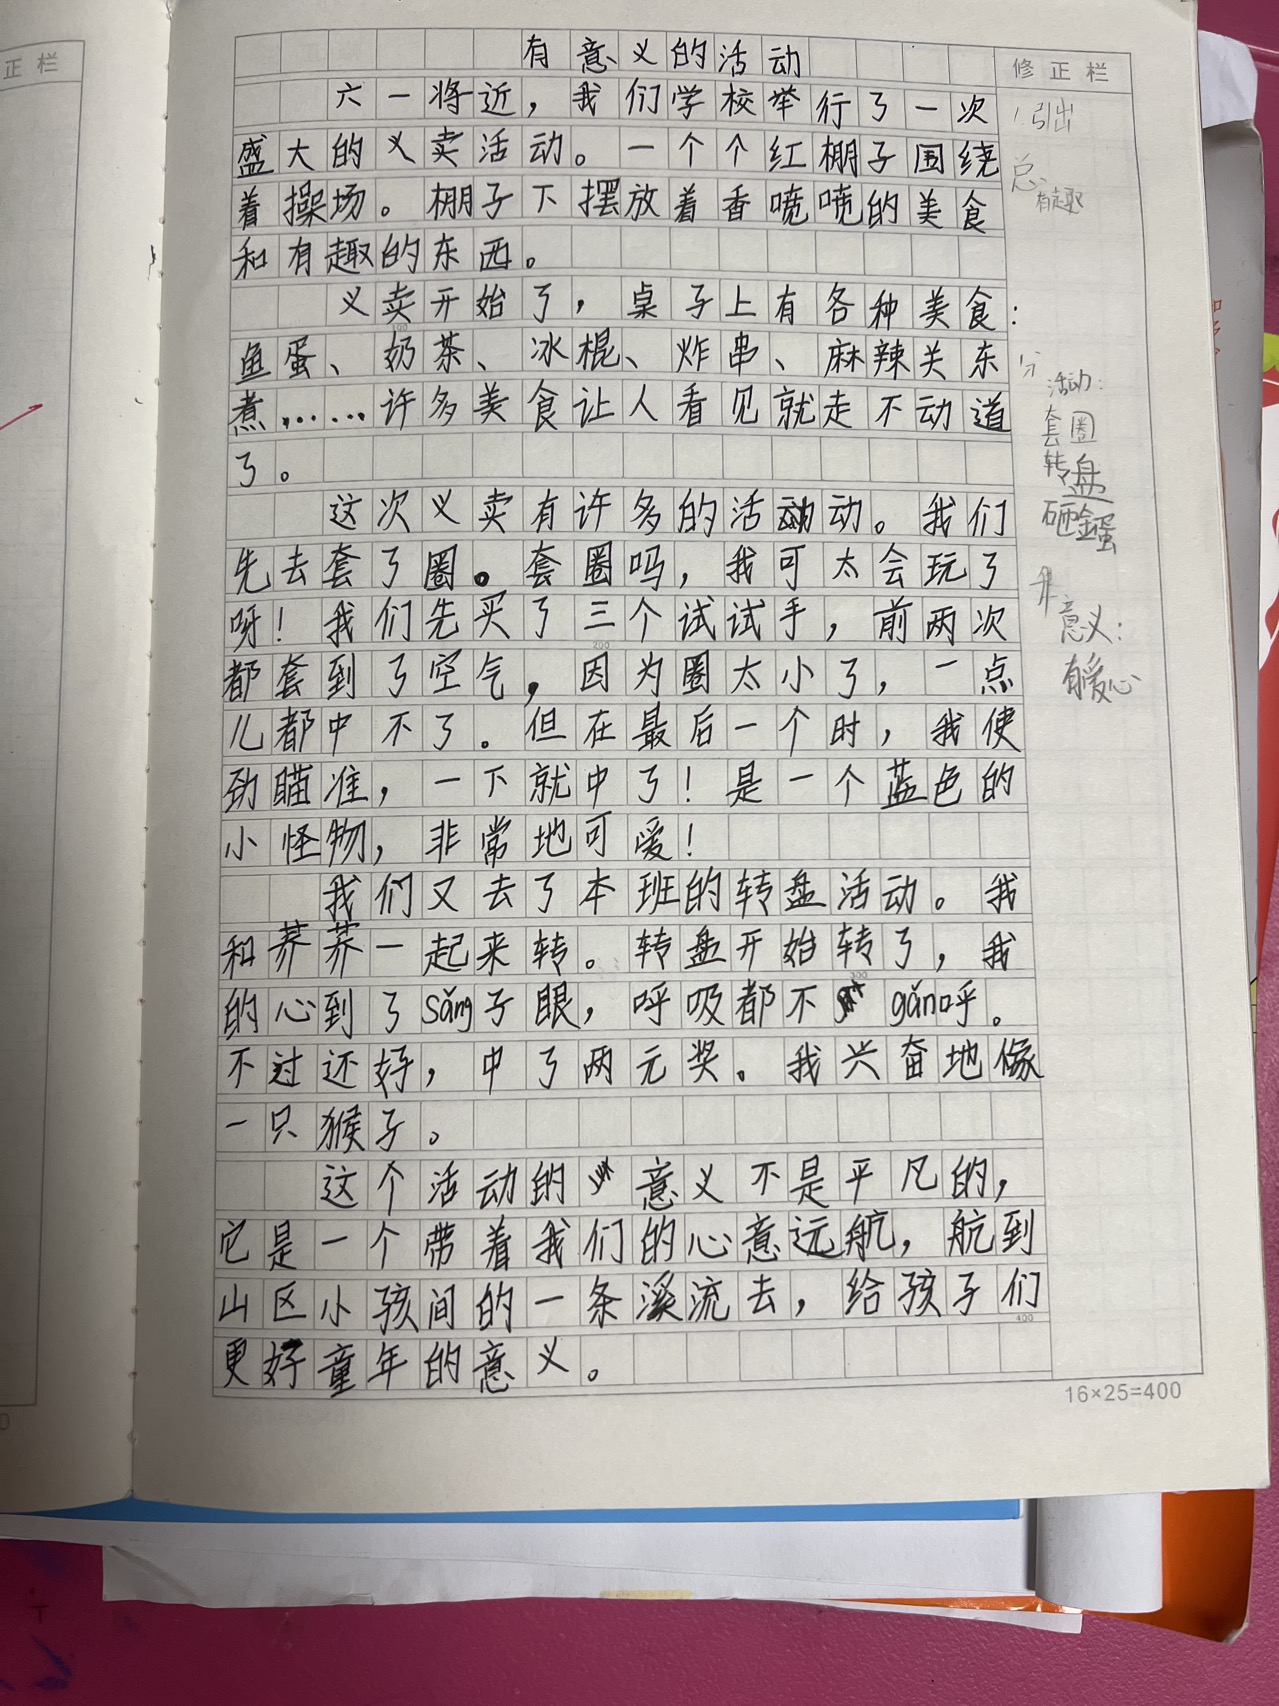 正栏
有意义的活动
修正栏
六一将近，我们学校举行了一次
盛大的义卖活动。一个个红棚子围绕
着操场。棚子下摆放着香喷喷的美食
和有趣的东西。
义卖开始了，桌子上有各种美食：
鱼蛋、奶茶、冰棍、炸串、麻辣关东
煮……许多美食让人看见就走不动道
了。
这次义卖有许多的活动。我们
先去套了圈。套圈吗，我可太会玩了
呀！我们先买了三个试试手，前两次
都套到了空气，因为圈太小了，一点
儿都中不了。但在最后一个时，我使
劲瞄准，一下就中了！是一个蓝色的
小怪物，非常地可爱！
我们又去了本班的转盘活动。我
和荞荞一起来转。转盘开始转了，我
的心到了sǎng子眼，呼吸都不gǎn呼。
不过还好，中了两元奖。我兴奋地像
一只猴子。
这个活动的意义不是平凡的，
它是一个带着我们的心意远航，航到
山区小孩间的一条溪流去，给孩子们
更好童年的意义。
16×25=400
100
200
300
400
引出
总
有趣
分
活动：
套圈
转盘
砸金蛋
意义：
有爱心